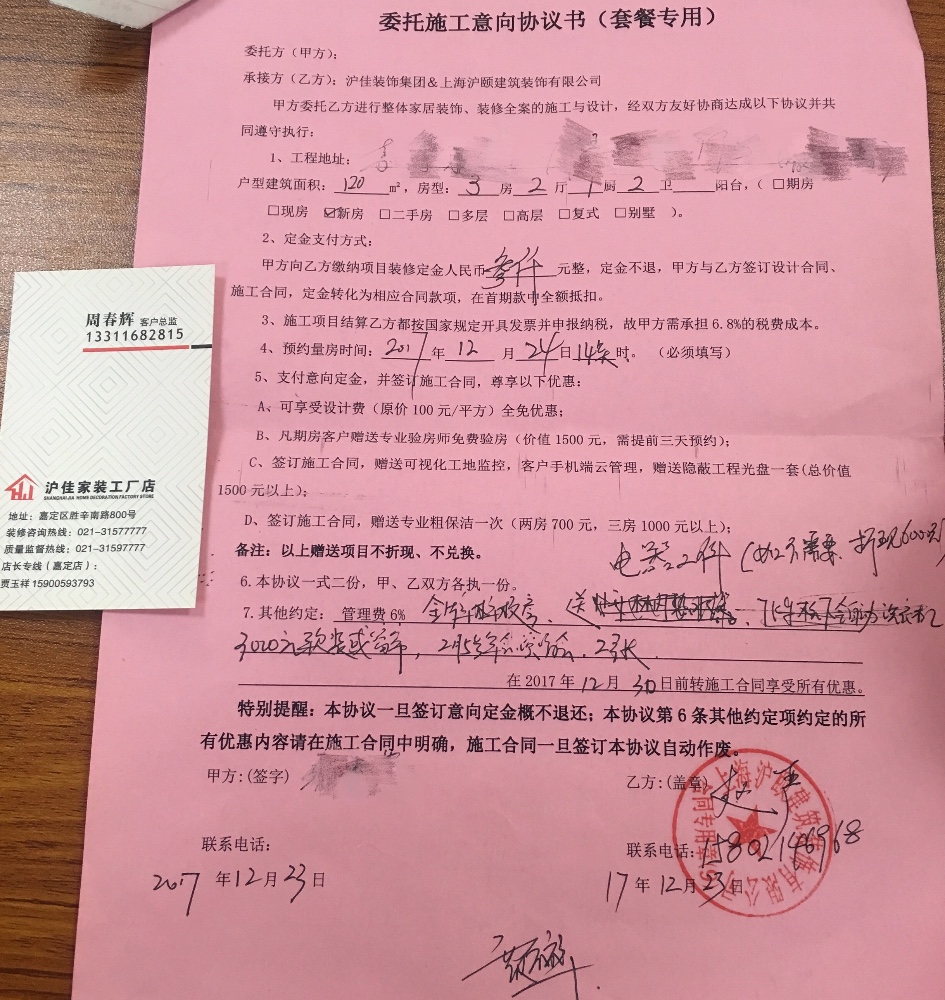 委托施工意向协议书（套餐专用）
委托方（甲方）：
承接方（乙方）：沪佳装饰集团＆上海沪颐建筑装饰有限公司
甲方委托乙方进行整体家居装饰、装修全案的施工与设计，经双方友好协商达成以下协议并共
同遵守执行：
1、工程地址：
户型建筑面积：120 m²，房型：3 房 2 厅 1 厨 2 卫 阳台，（ □期房
□现房 ☑新房 □二手房 □多层 □高层 □复式 □别墅 ）。
2、定金支付方式：
甲方向乙方缴纳项目装修定金人民币 叁仟 元整，定金不退，甲方与乙方签订设计合同、
施工合同，定金转化为相应合同款项，在首期款中全额抵扣。
3、施工项目结算乙方都按国家规定开具发票并申报纳税，故甲方需承担 6.8%的税费成本。
4、预约量房时间：2017 年 12 月 24 日 14点 时。（必须填写）
5、支付意向定金，并签订施工合同，尊享以下优惠：
A、可享受设计费（原价 100 元/平方）全免优惠；
B、凡期房客户赠送专业验房师免费验房（价值 1500 元，需提前三天预约）；
C、签订施工合同，赠送可视化工地监控，客户手机端云管理，赠送隐蔽工程光盘一套（总价值
1500 元以上）；
D、签订施工合同，赠送专业粗保洁一次（两房 700 元，三房 1000 元以上）；
备注：以上赠送项目不折现、不兑换。
电器2件（如不需要、折现600元）
6.本协议一式二份，甲、乙双方各执一份。
7.其他约定：管理费6% 送
3000元
在 2017 年 12 月 30 日前转施工合同享受所有优惠。
特别提醒：本协议一旦签订意向定金概不退还；本协议第 6 条其他约定项约定的所
有优惠内容请在施工合同中明确，施工合同一旦签订本协议自动作废。
甲方：(签字)
乙方：(盖章)
上海沪颐建筑装饰有限公司
合同专用章
联系电话：
联系电话：15802146968
2017 年 12 月 23 日
17 年 12 月 23 日
周春辉 客户总监
13311682815
沪佳家装工厂店
SHANGHAI JIA HOME DECORATION FACTORY STORE
地址：嘉定区胜辛南路800号
装修咨询热线：021-31577777
质量监督热线：021-31597777
店长专线（嘉定店）：
贾玉祥 15900593793